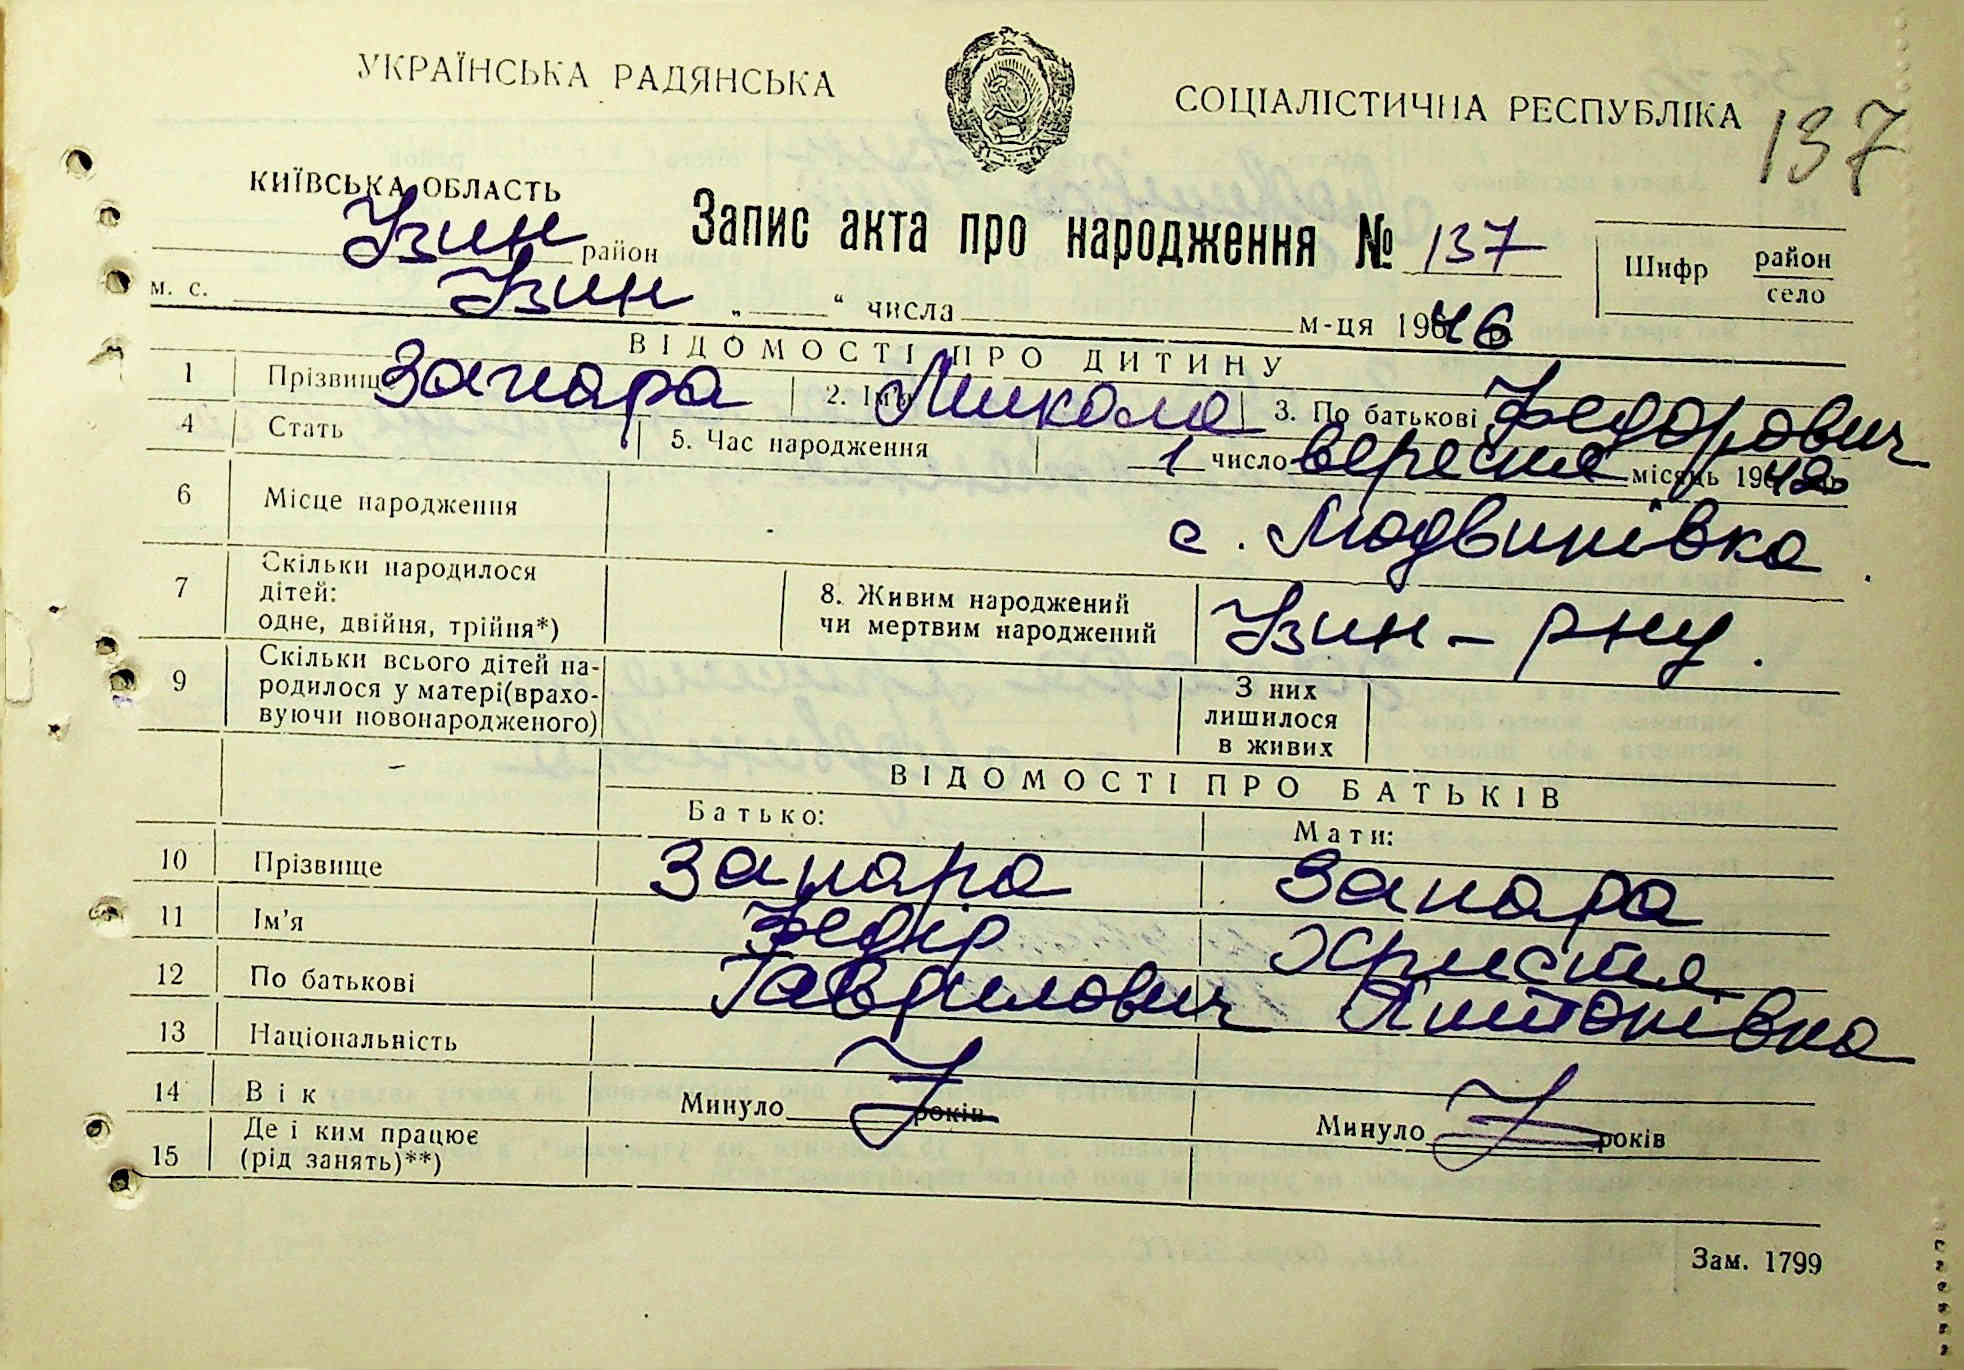 УКРАЇНСЬКА РАДЯНСЬКА СОЦІАЛІСТИЧНА РЕСПУБЛІКА
137
КИЇВСЬКА ОБЛАСТЬ
Узин район
Запис акта про народження № 137
Шифр район село
м. с. Узин „ “ числа м-ця 1946
ВІДОМОСТІ ПРО ДИТИНУ
1 Прізвище Запара 2. Ім'я Микола 3. По батькові Федорович
4 Стать 5. Час народження 1 число вересня місяць 1942
6 Місце народження с. Людвинівка
7 Скільки народилося дітей: одне, двійня, трійня*) 8. Живим народжений чи мертвим народжений Узин-рну.
9 Скільки всього дітей народилося у матері (враховуючи новонародженого) З них лишилося в живих
ВІДОМОСТІ ПРО БАТЬКІВ
Батько: Мати:
10 Прізвище Запара Запара
11 Ім'я Федір Христя
12 По батькові Гаврилович Антонівна
13 Національність
14 Вік Минуло років Минуло років
15 Де і ким працює (рід занять)**)
Зам. 1799